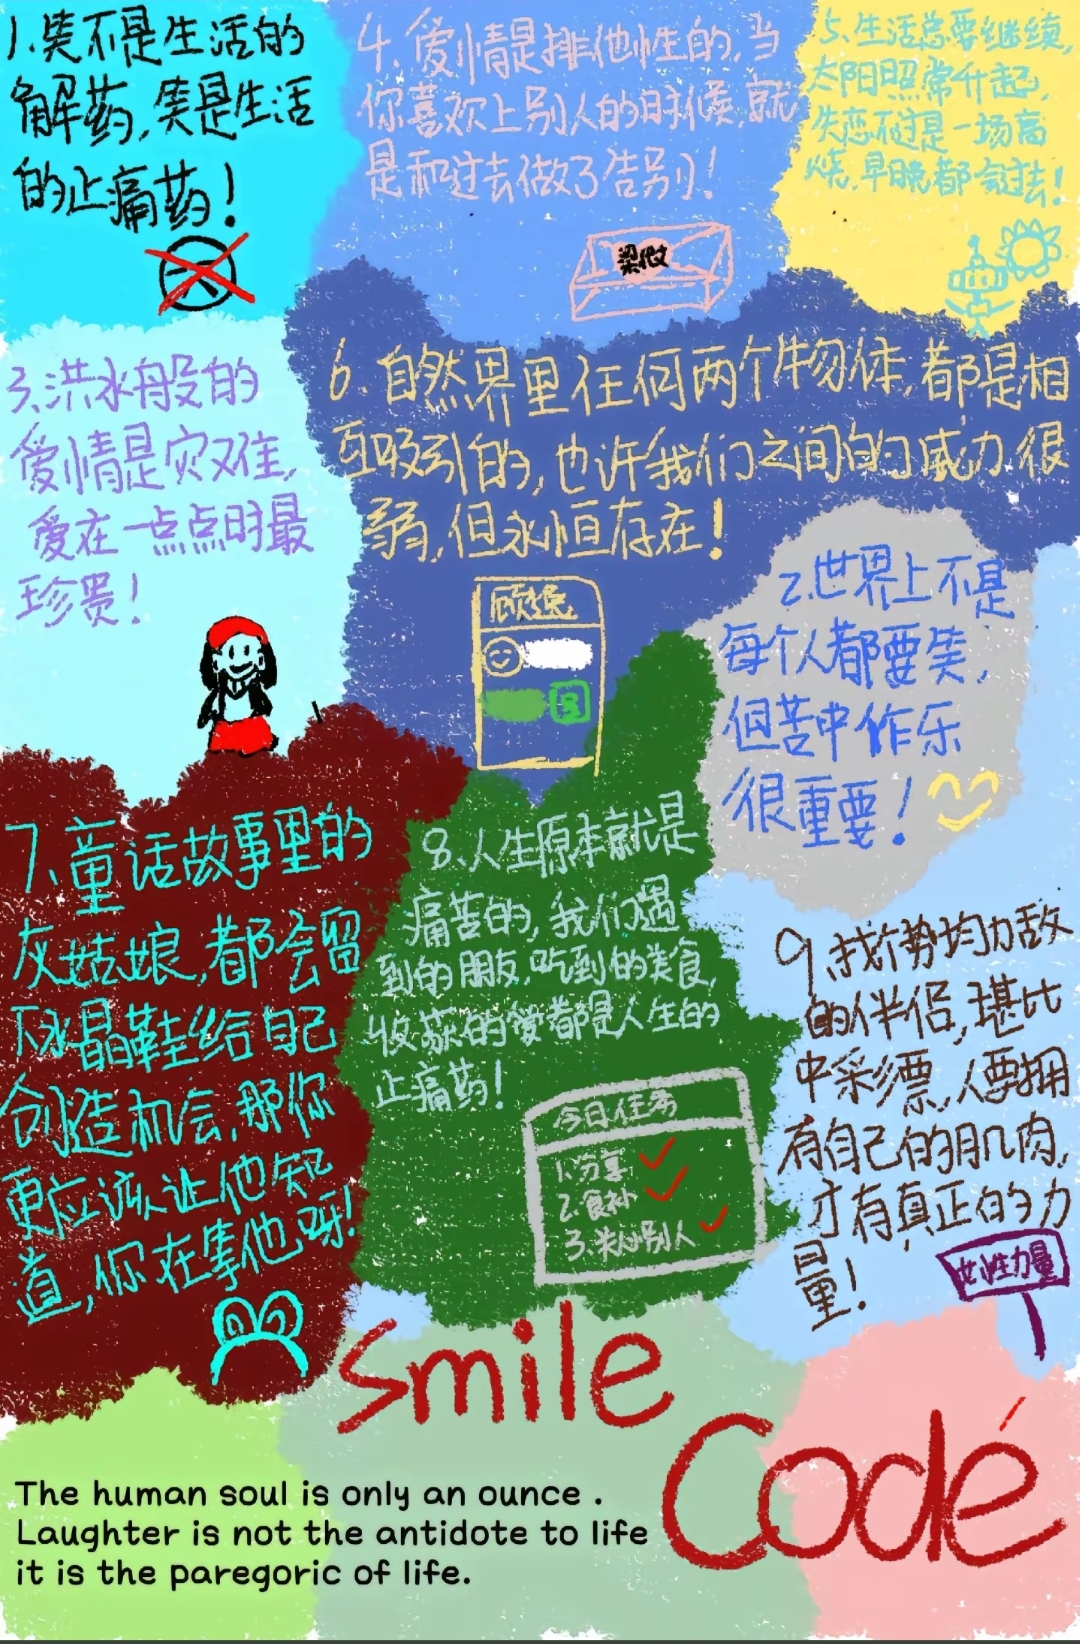 1.笑不是生活的
解药,笑是生活
的止痛药!
4.爱情是排他性的,当
你喜欢上别人的时候,就
是和过去做了告别!
梁代文
5.生活总要继续,
太阳照常升起,
失恋不过是一场高
烧,早晚都会过去!
3.洪水般的
爱情是灾难,
爱在一点点时最
珍贵!
6.自然界里任何两个物体,都是相
互吸引的,也许我们之间的的威力很
弱,但永恒存在!
顾逸
2.世界上不是
每个人都要笑,
但苦中作乐
很重要!
7.童话故事里的
灰姑娘,都会留
下水晶鞋给自己
创造机会,那你
更应该让他知
道,你在集他呀!
8.人生原本就是
痛苦的,我们遇
到的朋友,吃到的美食,
收获的爱都是人生的
止痛药!
今日任务
1.分享
2.食补
3.关心别人
9.找个势均力敌
的伴侣,堪比
中彩票,人要拥
有自己的肌肉,
才有真正的力
量!
女性力量
smile
Code
The human soul is only an ounce .
Laughter is not the antidote to life
it is the paregoric of life.